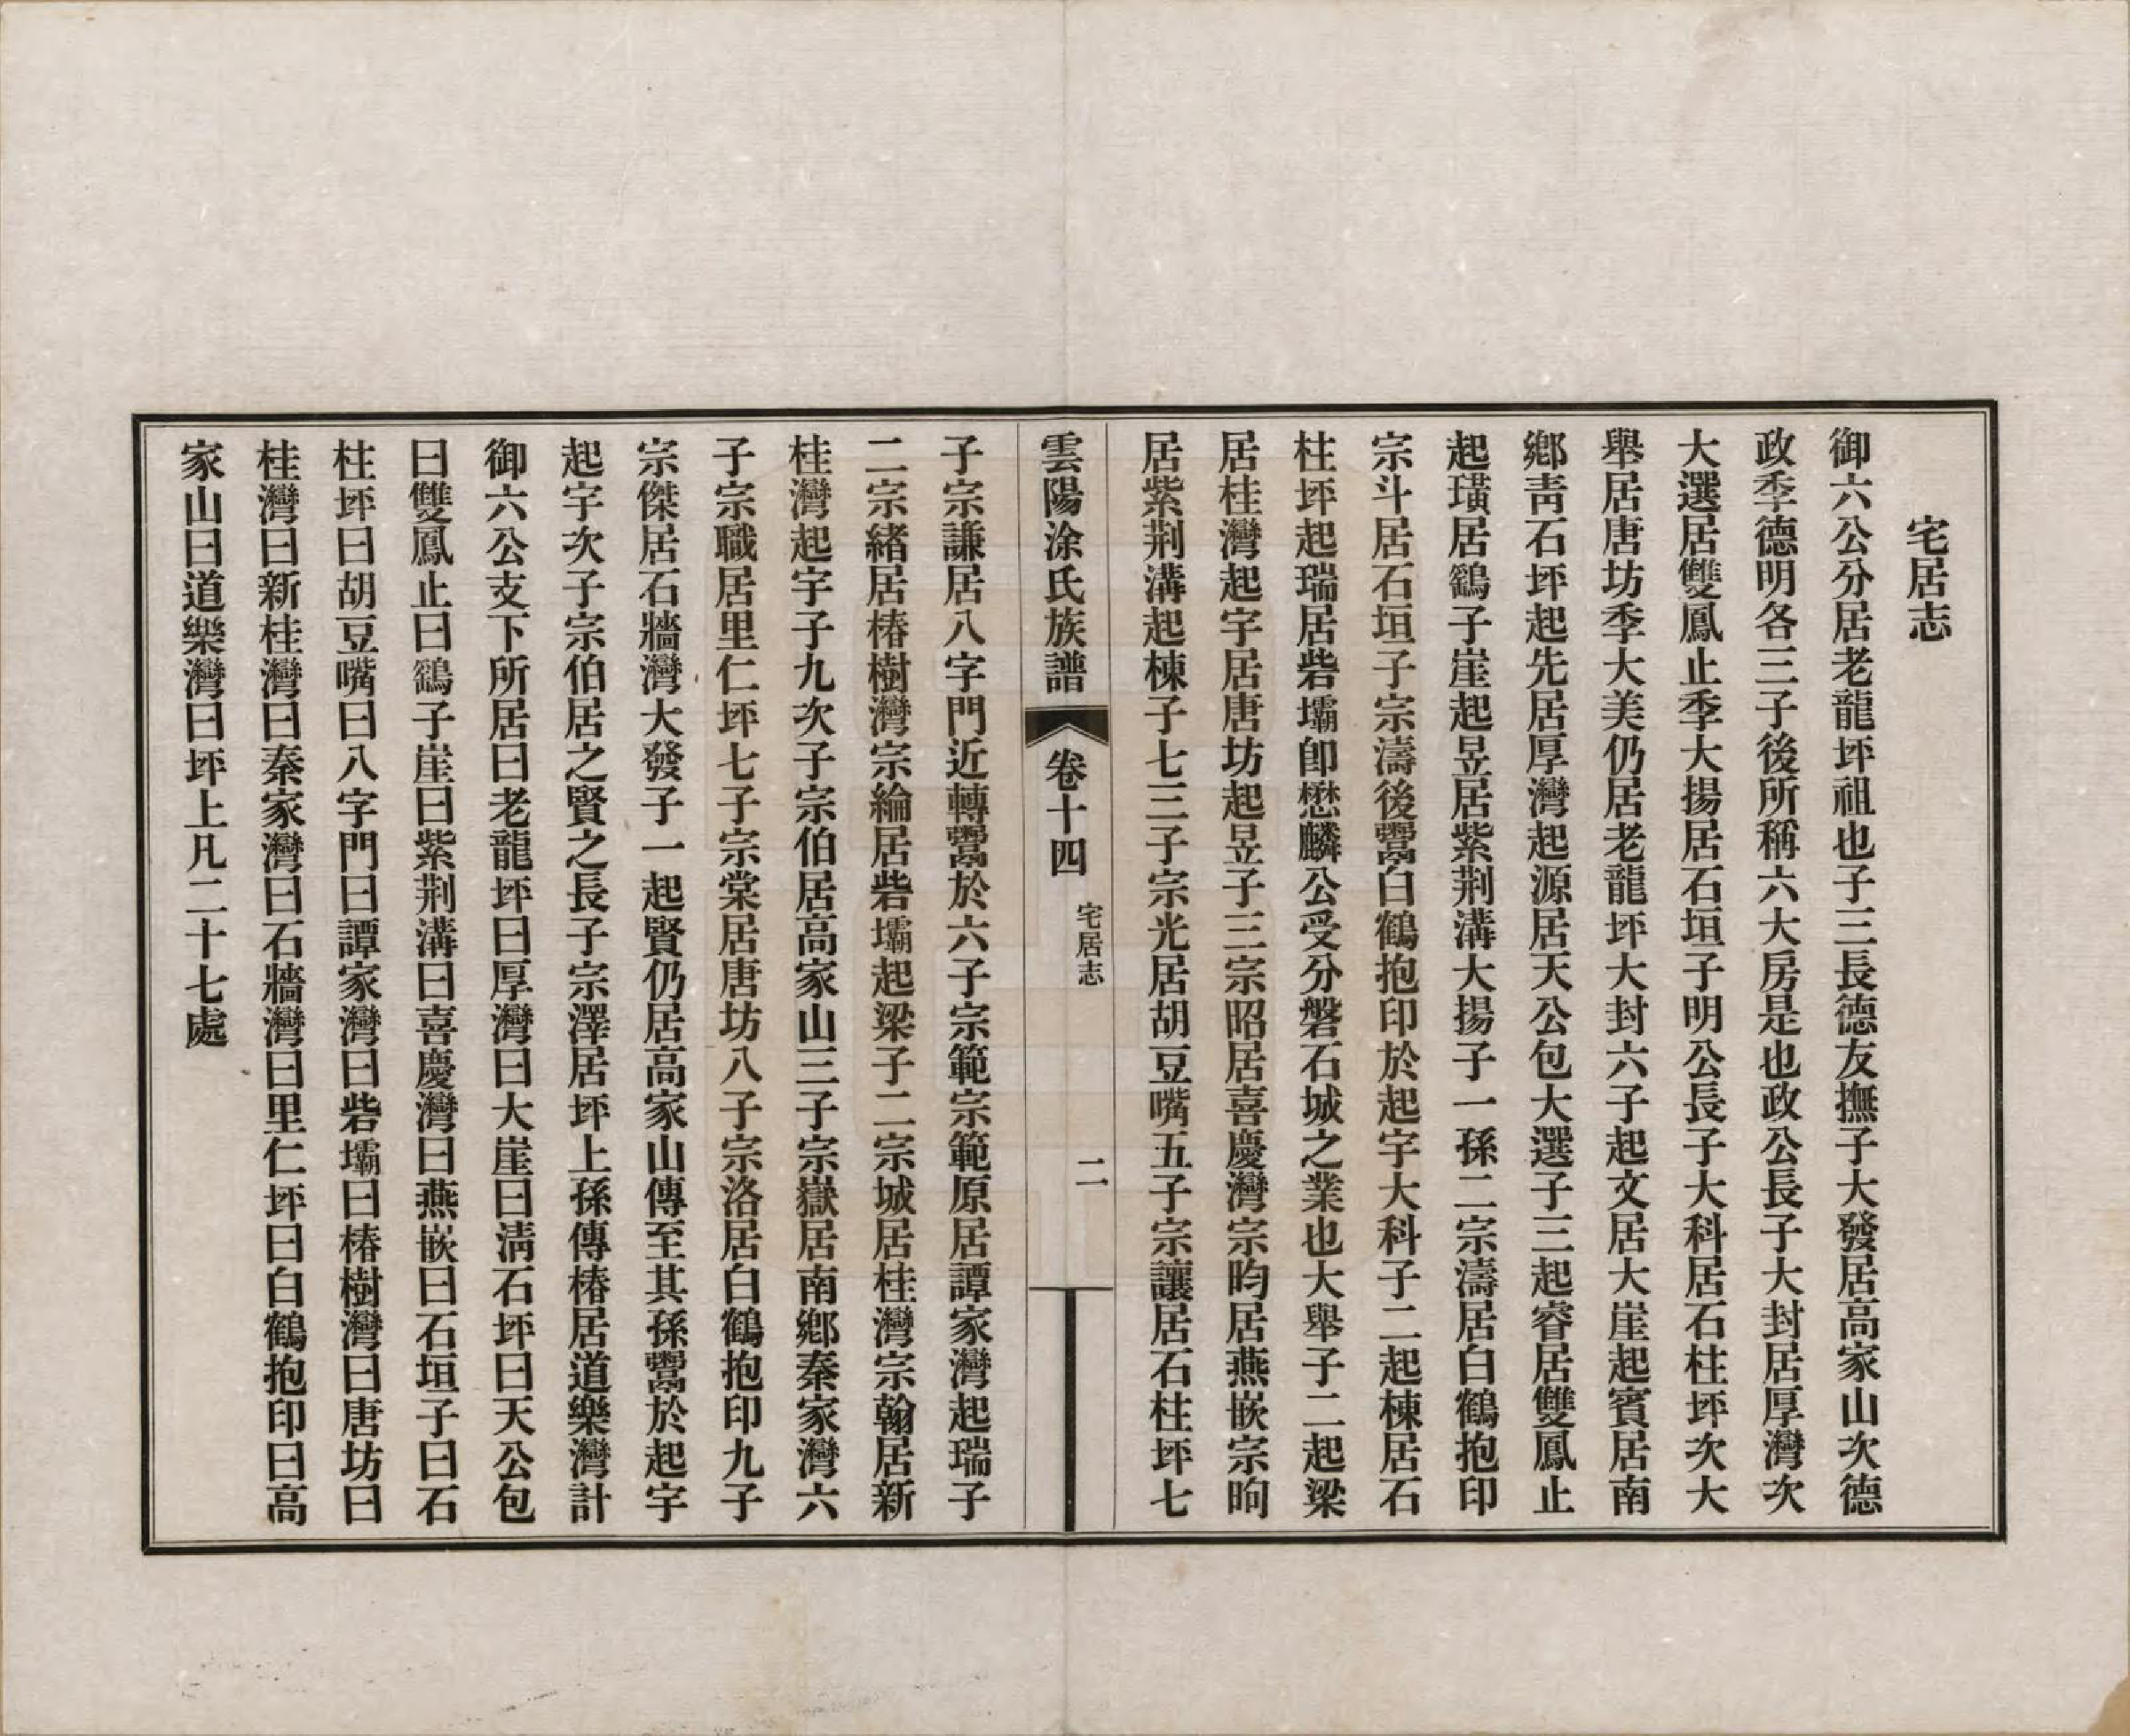 宅居志
御六公分居老龍坪祖也子三長德友撫子大發居高家山次德
政季德明各三子後所稱六大房是也政公長子大封居厚灣次
大選居雙鳳止季大揚居石垣子明公長子大科居石柱坪次大
舉居唐坊季大美仍居老龍坪大封六子起文居大崖起賓居南
鄉靑石坪起先居厚灣起源居天公包大選子三起睿居雙鳳止
起璜居鷂子崖起昱居紫荆溝大揚子一孫二宗濤居白鶴抱印
宗斗居石垣子宗濤後鬻白鶴抱印於起字大科子二起棟居石
柱坪起瑞居砦壩卽懋麟公受分磐石城之業也大舉子二起梁
居桂灣起字居唐坊起昱子三宗昭居喜慶灣宗昀居燕嵌宗昫
居紫荆溝起棟子七三子宗光居胡豆嘴五子宗讓居石柱坪七
雲陽涂氏族譜
卷十四
宅居志
二
子宗謙居八字門近轉鬻於六子宗範宗範原居譚家灣起瑞子
二宗緒居椿樹灣宗綸居砦壩起梁子二宗城居桂灣宗翰居新
桂灣起字子九次子宗伯居高家山三子宗嶽居南鄉秦家灣六
子宗職居里仁坪七子宗棠居唐坊八子宗洛居白鶴抱印九子
宗傑居石牆灣大發子一起賢仍居高家山傳至其孫鬻於起字
起字次子宗伯居之賢之長子宗澤居坪上孫傳椿居道樂灣計
御六公支下所居曰老龍坪曰厚灣曰大崖曰淸石坪曰天公包
曰雙鳳止曰鷂子崖曰紫荆溝曰喜慶灣曰燕嵌曰石垣子曰石
柱坪曰胡豆嘴曰八字門曰譚家灣曰砦壩曰椿樹灣曰唐坊曰
桂灣曰新桂灣曰秦家灣曰石牆灣曰里仁坪曰白鶴抱印曰高
家山曰道樂灣曰坪上凡二十七處